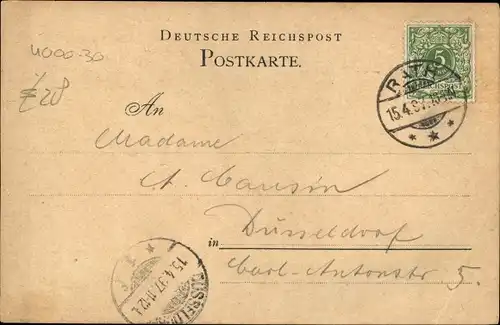 4000-30
£28
DEUTSCHE REICHSPOST
POSTKARTE.
5
RATH
15.4.97.
An
Madame
A. Causin
in Düsseldorf
Carl-Antonstr 5.
15.4.97.11-12V.